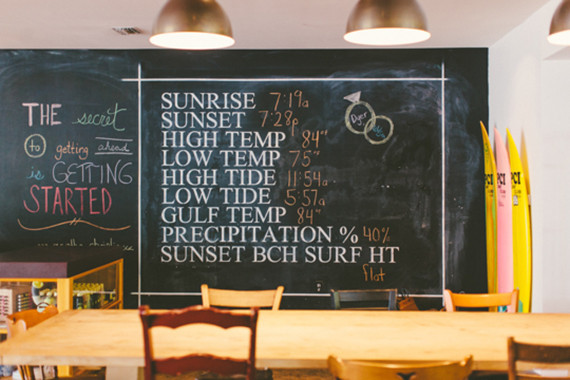 THE secret
to getting ahead
is GETTING
STARTED
SUNRISE 7:19a
SUNSET 7:28p
HIGH TEMP 84°
LOW TEMP 75°
HIGH TIDE 11:54a
LOW TIDE 5:57a
GULF TEMP 84°
PRECIPITATION % 40%
SUNSET BCH SURF HT
flat
Dyer
PCI
PCI
PCI